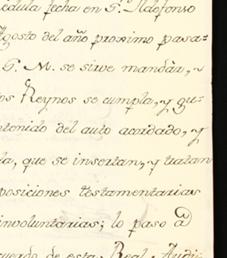 cedula fecha en Sn. Ildefonso
Agosto del año proximo pasa-
S. M. se sirve mandàr, y
os Reynos se cumpla, y gu-
ntenido del auto acordado, y
la, que se insertan, y tratan
posiciones testamentarias
involuntarias; lo paso a
cuerdo de esta Real Audi